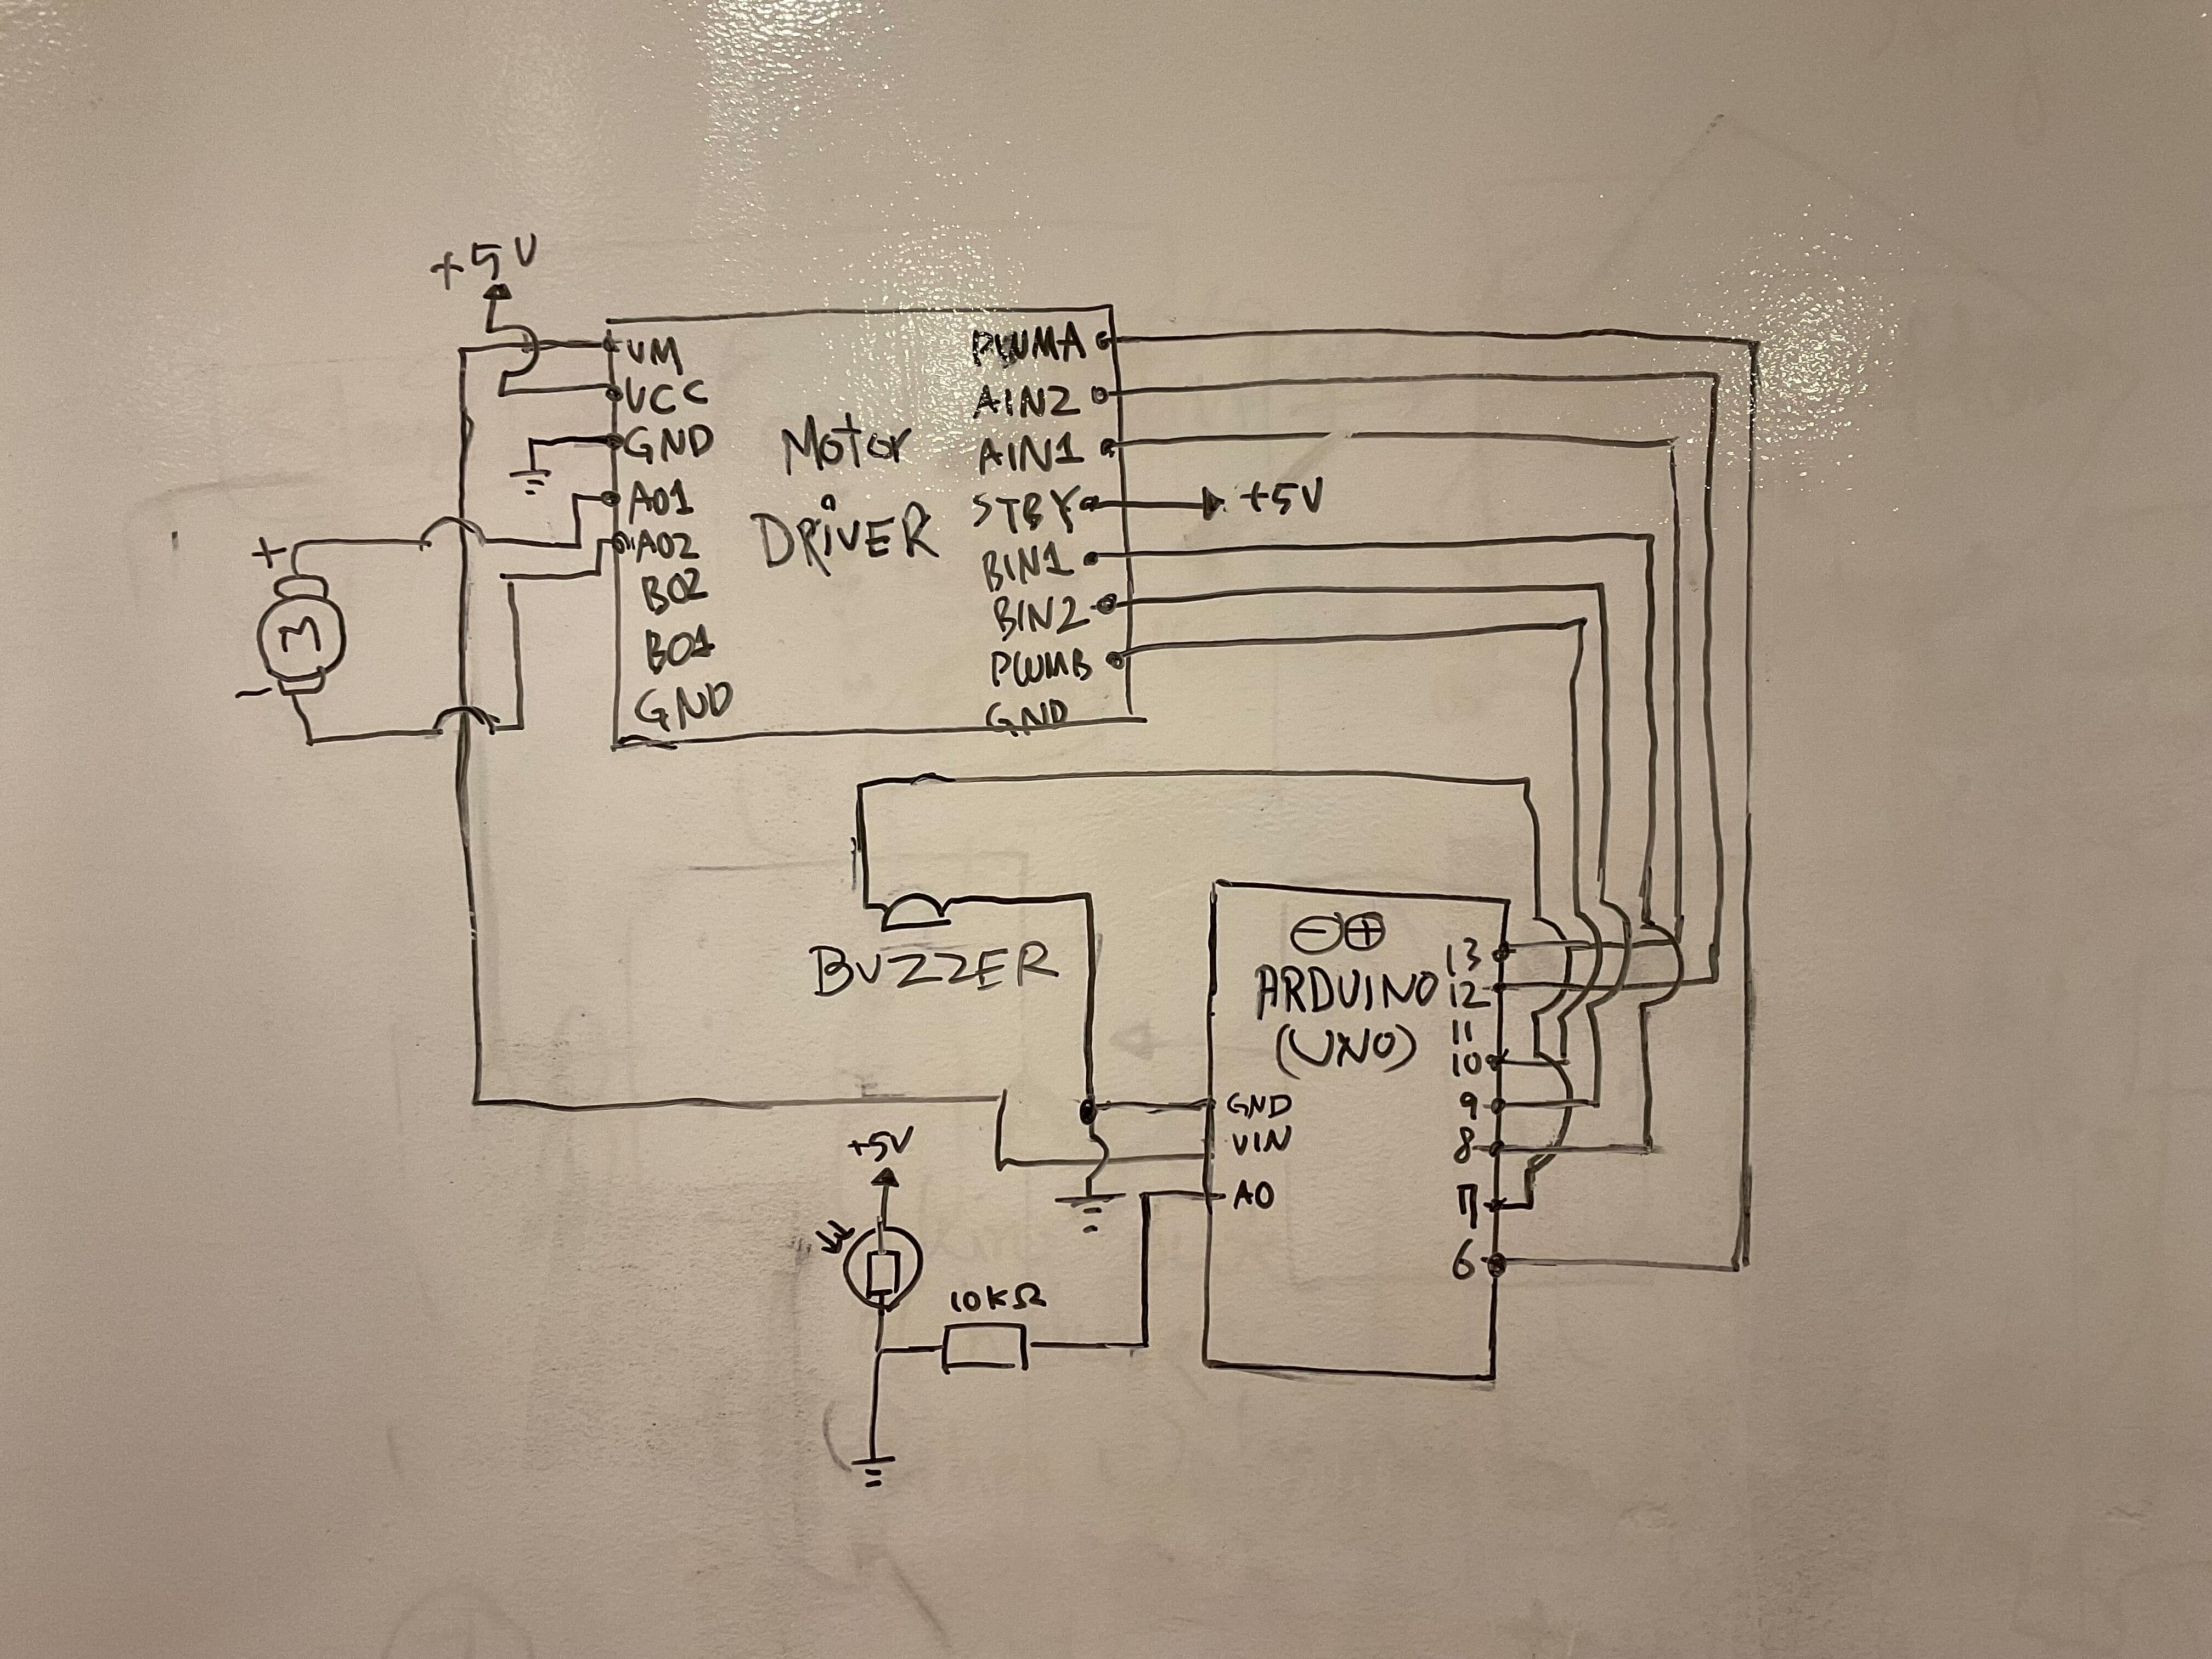 +5V
VM
VCC
GND
AO1
AO2
BO2
BO1
GND
Motor
DRiVER
PWMA
AIN2
AIN1
STBY
BIN1
BIN2
PWMB
GND
+5V
+
M
-
BUZZER
ARDUINO
(UNO)
13
12
11
10
9
8
7
6
GND
VIN
A0
+5V
10KΩ